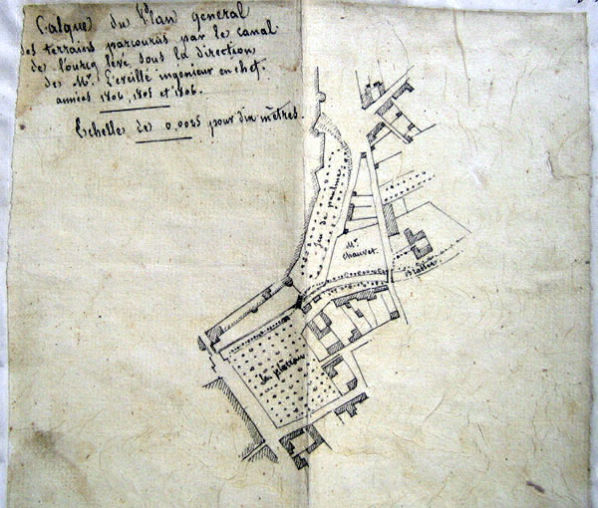 Calque du Plan general
des terrains parcourus par le canal
de l'ourcq levé sous la direction
de Mr. Leveillé ingenieur en chef.
années 1804, 1805 et 1806.
Echelle de 0.0025 pour dix mètres.
Jeu de paulme
Mr.
Chauvet.
La place au